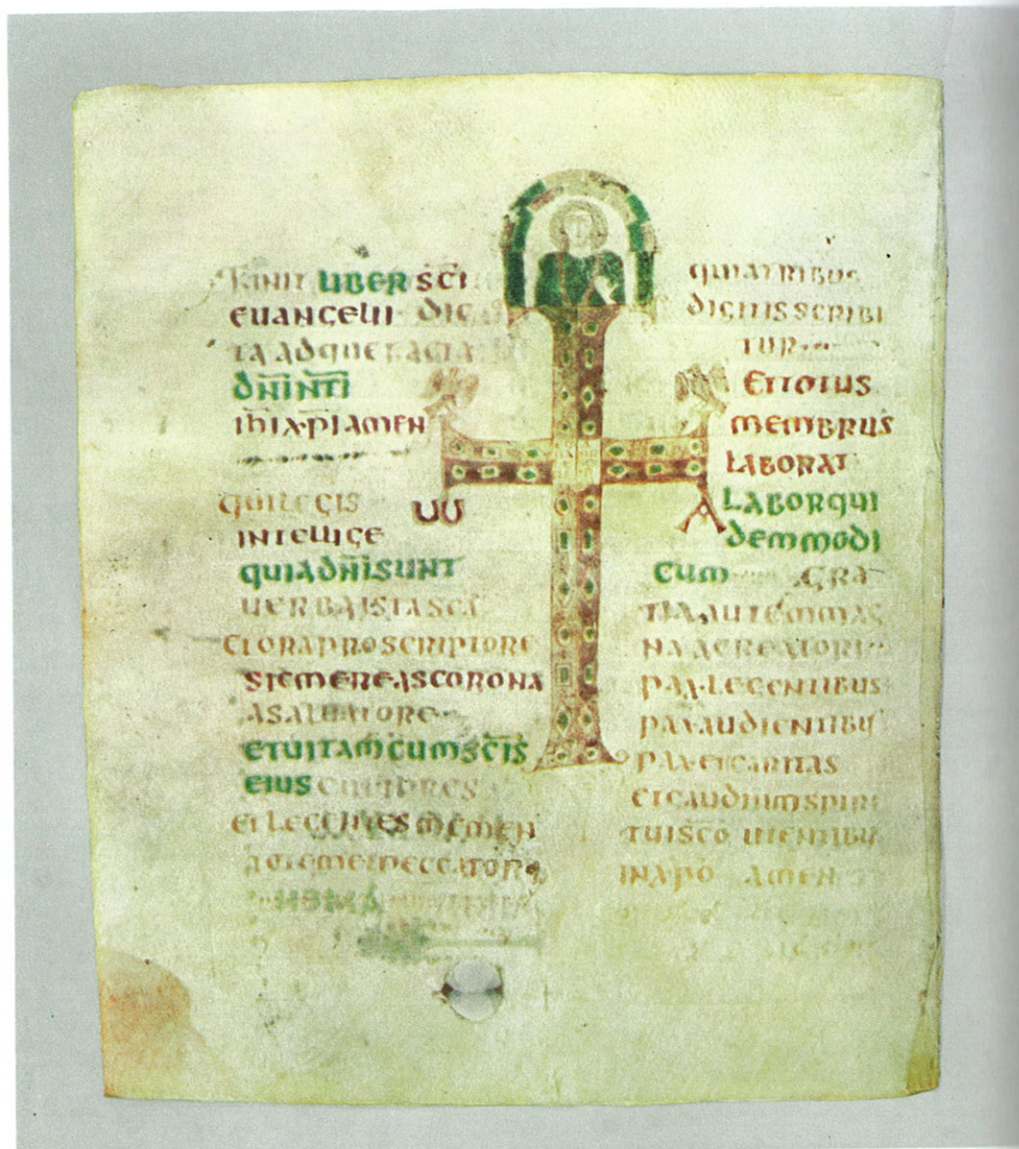 FINIT LIBER SCI
EUANGELII DIC
TA ADQUE FACTA
DN̄I NT̄I
IHIX·PI AMEN
UU
QUI LEGIS
INTELLIGE
QUIA DN̄I SUNT
UERBA ISTA SCI
ET ORA PRO SCRIPTORE
SIC MEREAS CORONA
A SALUATORE
ET UITAM CUM SC̄IS
EIUS
ET LEGENTES MEMEN
PECCATOR
QUIA TRIBUS
DIGITIS SCRIBI
TUR
ET TOTUS
MEMBRUS
LABORAT
A
LABOR QUI
DEM MODI
CUM GRA
TIA AUTEM MAG
NA A CREATORI
PAX LEGENTIBUS
PAX AUDIENTIBUS
PAX ET CARITAS
ET GAUDIUM SPIRI
TUI SC̄O UTENTIBUS
IN XPO AMEN